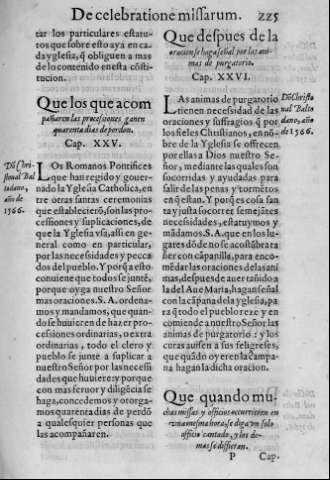 De celebratione missarum. 225
tar los particulares estatu-
tos que sobre esto aya en ca-
da yglesia, q̃ obliguen a mas
de lo contenido en esta cõsti-
tucion.
Que los que acom
pañaren las processiones ganen
quarenta dias de perdon.
Cap. XXV.
Dõ Chri-
stoual Bal
todano,
año de
1566.
LOs Romanos Pontifices
que han regido y gouer-
nado la Yglesia Catholica, en
tre otras santas ceremonias
que establecierõ, son las pro-
cessiones y suplicaciones, de
que la Yglesia vsa, assi en ge-
neral como en particular,
por las necessidades y pecca
dos del pueblo. Y porq̃ a esto
conuiene que todos se junté,
porque oyga nuestro Señor
mas oraciones. S. A. ordena-
mos y mandamos, que quan-
do se huuieren de hazer pro-
cessiones ordinarias, o extra
ordinarias, todo el clero y
pueblo se junte a suplicar a
nuestro Señor por las necessi
dades que huuiere: y porque
con mas feruor y diligẽcia se
haga, concedemos y otorga-
mos quarenta dias de perdõ
a qualesquier personas que
las acompañaren.
Que despues de la
oracion se haga señal por las ani-
mas de purgatorio.
Cap. XXVI.
Dõ Christo
ual Balto
dano, año
de 1566.
LAs animas de purgatorio
tienen necessidad de las
oraciones y suffragios q̃ por
los fieles Christianos, en nõ-
bre de la Yglesia se offrecen
por ellas a Dios nuestro Se-
ñor, mediante las quales son
socorridas y ayudadas para
salir de las penas y tormẽtos
en q̃ estan. Y porq̃ es cosa san
ta y justa socorrer semejãtes
necessidades, estatuymos y
mãdamos. S. A. que en los lu-
gares dõde no se acostũbra ta
ñer con cãpanilla, para enco-
mẽdar las oraciones de las ani
mas, despues de auer tañido a
la del Aue Maria, hagan señal
con la cãpana de la yglesia, pa
ra q̃ todo el pueblo reze y en
comiende a nuestro Señor las
animas de purgatorio: y los
curas auisen a sus feligreses,
que quãdo oyeren la cãmpa
na hagan la dicha oracion.
Que quando mu-
chas missas y officios occurrieren en
vna mesma hora, se diga vn solo
officio cantado, y los de-
mas se difieran.
P Cap.